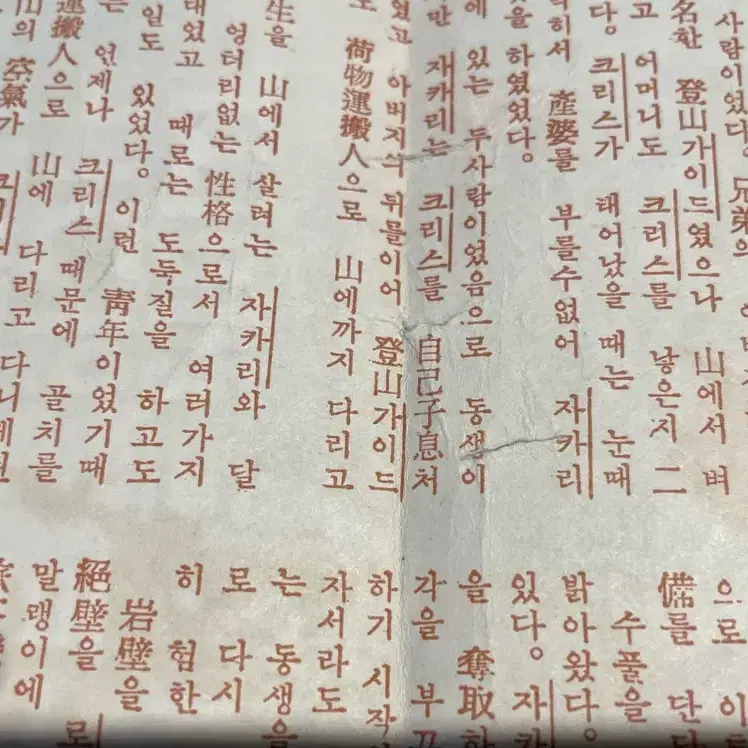 사람이었다。兄弟의
名한 登山가이드였으나 山에서 벼
고 어머니도 크리스를 낳은지 二
다。크리스가 태어났을 때는 눈때
히서 産婆를 부를수없어 자카리
을 하였었다。
에 있는 두사람이었음으로 동생이
만 자카리는 크리스를 自己子息처
였고 아버지의 뒤를이어 登山가이드
고 荷物運搬人으로 山에까지 다리고
生을 山에서 살려는 자카리와 달
엉터리없는 性格으로서 여러가지
태었고 때로는 도둑질을 하고도
일도 있었다。이런 靑年이었기때
언제나 크리스 때문에 골치를
運搬人으로 山에 다리고 다니게된
山의 空氣가
으로
備를 단
수풀을
밝아왔다。
있다。자카
을 奪取하
각을 부끄
하기 시작
자서라도
는 동생을
로 다시
히 험한
岩壁을
絕壁을 로
말맹이에